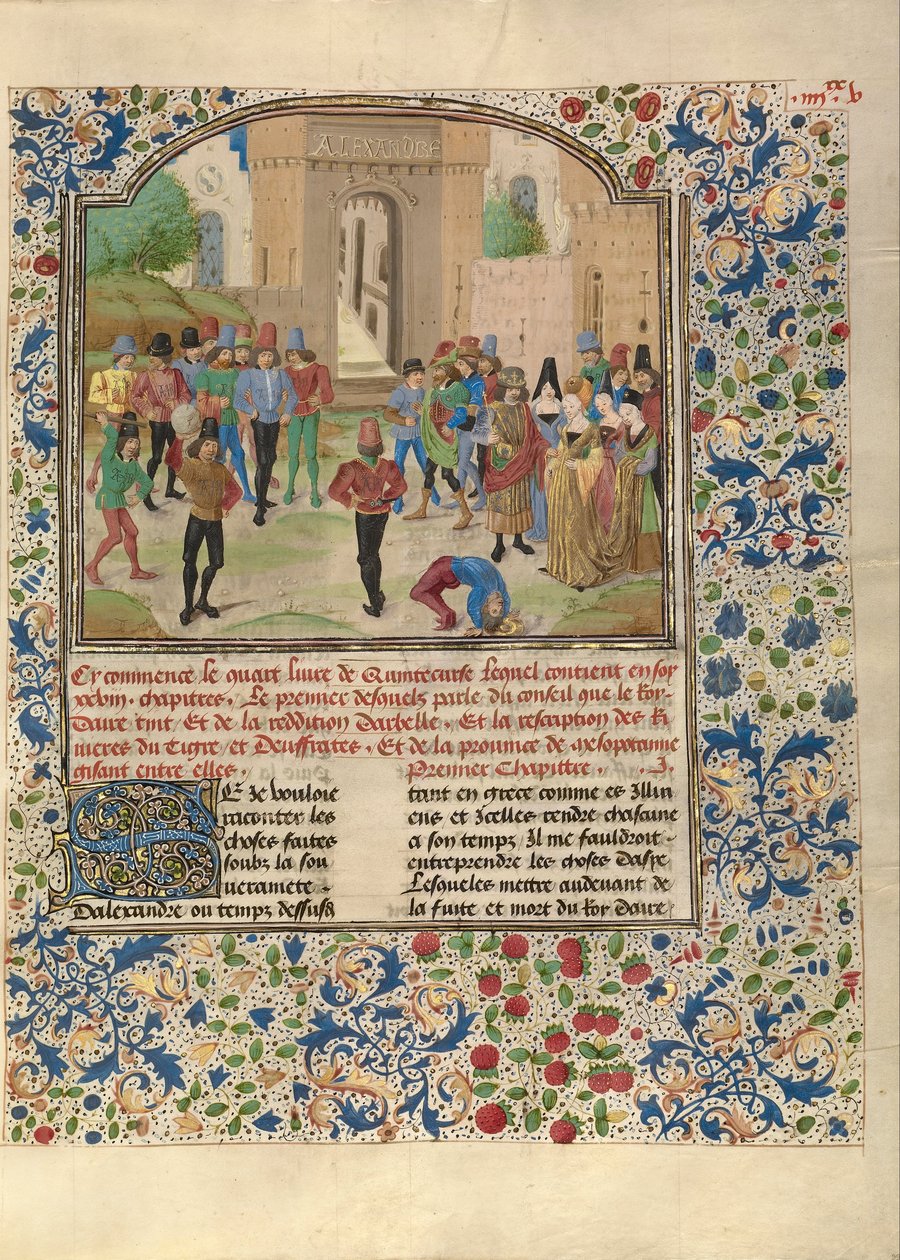 .iiii.xx v
ALEXANDRE
Cy commence le quart liure de Quintecurse lequel contient en soy
xxviii. chapitres. Le premier desquelz parle du conseil que le Roy
Daire tint / Et de la reddition Darbelle. Et la rescription des Ri
uieres du Tigre / et Deuffrates. Et de la prouince de Mesopotamie
gisant entre elles.
Premier Chapittre. .I.
SE Je vouloie
raconter les
choses faites
soubz la sou
uerainete
Dalexandre ou temps dessusd
tant en grece comme es Illiri
ens et Jcelles rendre chascune
a son temps Il me fauldroit
entreprendre les choses Dasye
Lesqueles mettre audeuant de
la fuite et mort du Roy Daire